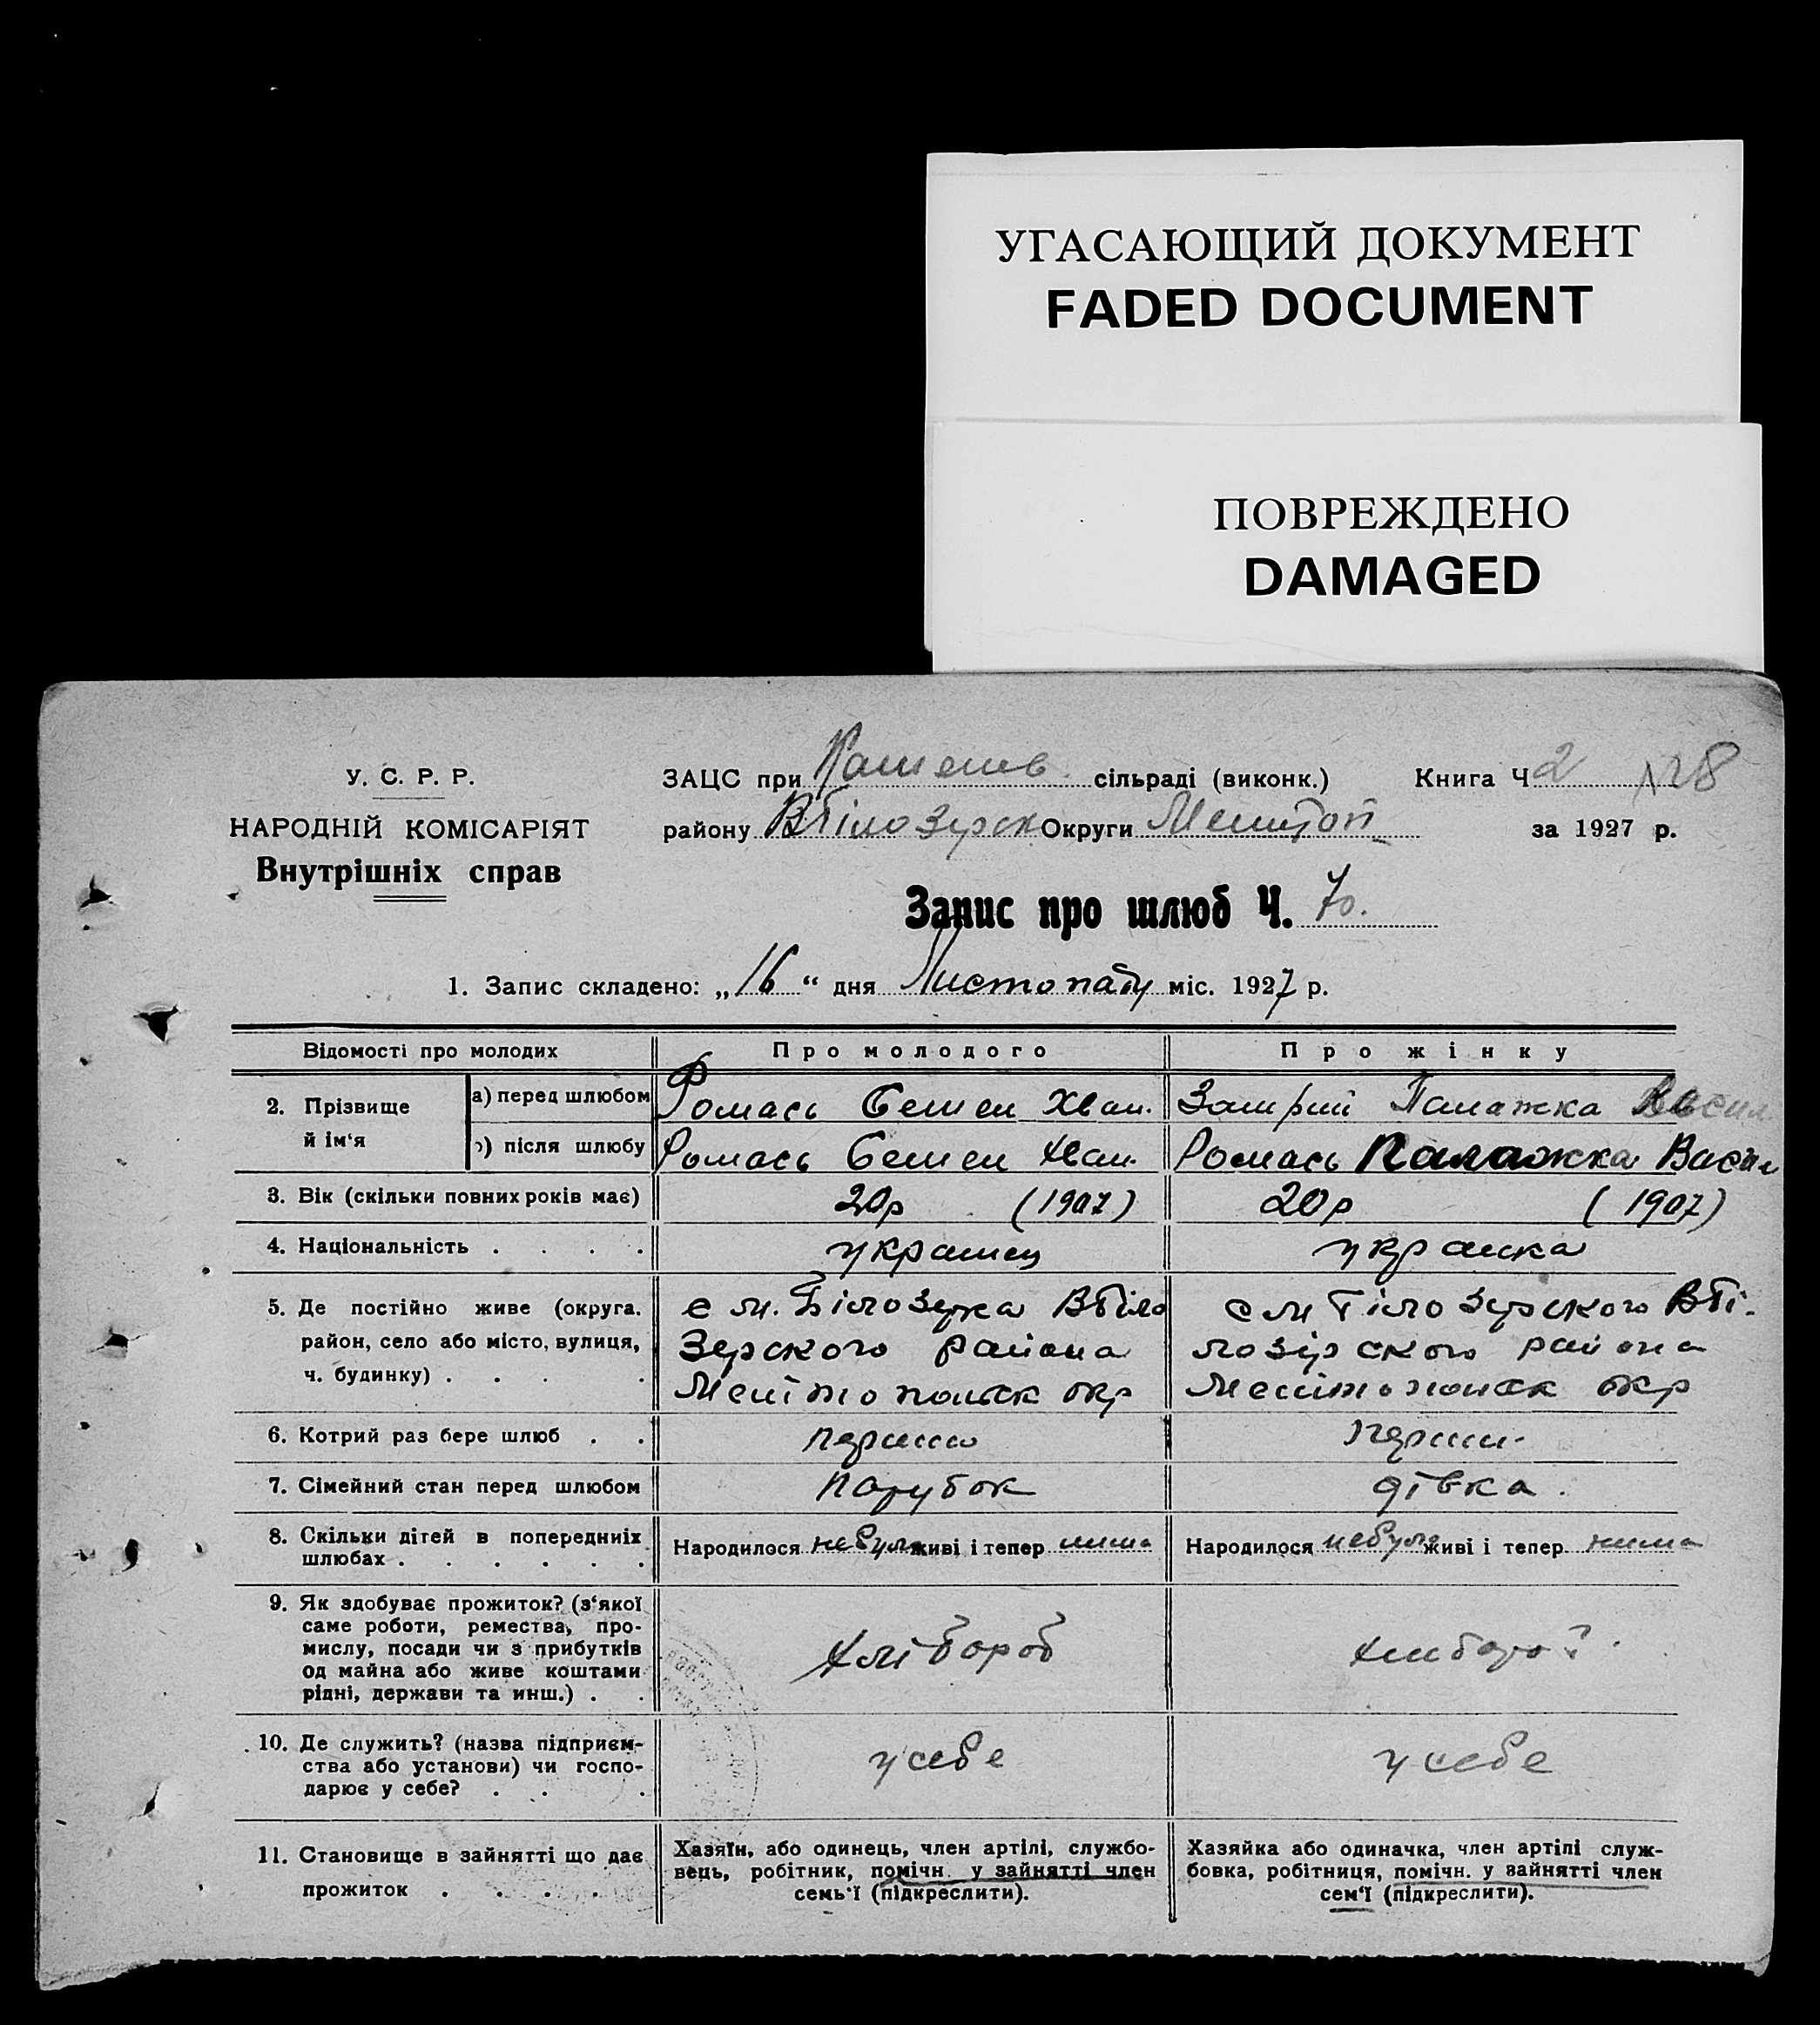 УГАСАЮЩИЙ ДОКУМЕНТ
FADED DOCUMENT
ПОВРЕЖДЕНО
DAMAGED
У. С. Р. Р.
НАРОДНІЙ КОМІСАРІЯТ
Внутрішніх справ
ЗАЦС при сільраді (виконк.) Книга Ч 2 №8
району Вбілозерск Округи Мелітоп за 1927 р.
Запис про шлюб Ч. 70.
1. Запис складено: „16“ дня Листопаду міс. 1927 р.
Відомості про молодих
Про молодого
Про жінку
2. Прізвище й ім‘я
а) перед шлюбом
Ромась Семен Хван.
Палажка Васил
б) після шлюбу
Ромась Семен Хван.
Ромась Палажка Васил
3. Вік (скільки повних років має)
20р (1907)
20р (1907)
4. Національність . . . .
украінец
украінка
5. Де постійно живе (округа.
район, село або місто, вулиця,
ч. будинку) . . . .
с м. Білозерка Вбіло
Зерского района
Мелітопольск окр
с м Білозерского Вбі-
лозерского района
Мелітопольск окр
6. Котрий раз бере шлюб . .
перший
перший
7. Сімейний стан перед шлюбом
парубок
дівка.
8. Скільки дітей в попередніх
шлюбах . . . . . .
Народилося небуло живі і тепер нима
Народилося небуло живі і тепер нима
9. Як здобуває прожиток? (з‘якої
саме роботи, ремества, про-
мислу, посади чи з прибутків
од майна або живе коштами
рідні, держави та инш.) . .
хлібороб
10. Де служить? (назва підприєм-
ства або установи) чи госпо-
дарює у себе? . . .
у себе
у себе
11. Становище в зайнятті що дає
прожиток . . . .
Хазяїн, або одинець, член артілі, службо-
вець, робітник, помічн. у зайнятті член
семь‘ї (підкреслити).
Хазяйка або одиначка, член артілі служ-
бовка, робітниця, помічн. у зайнятті член
сем‘ї (підкреслити).